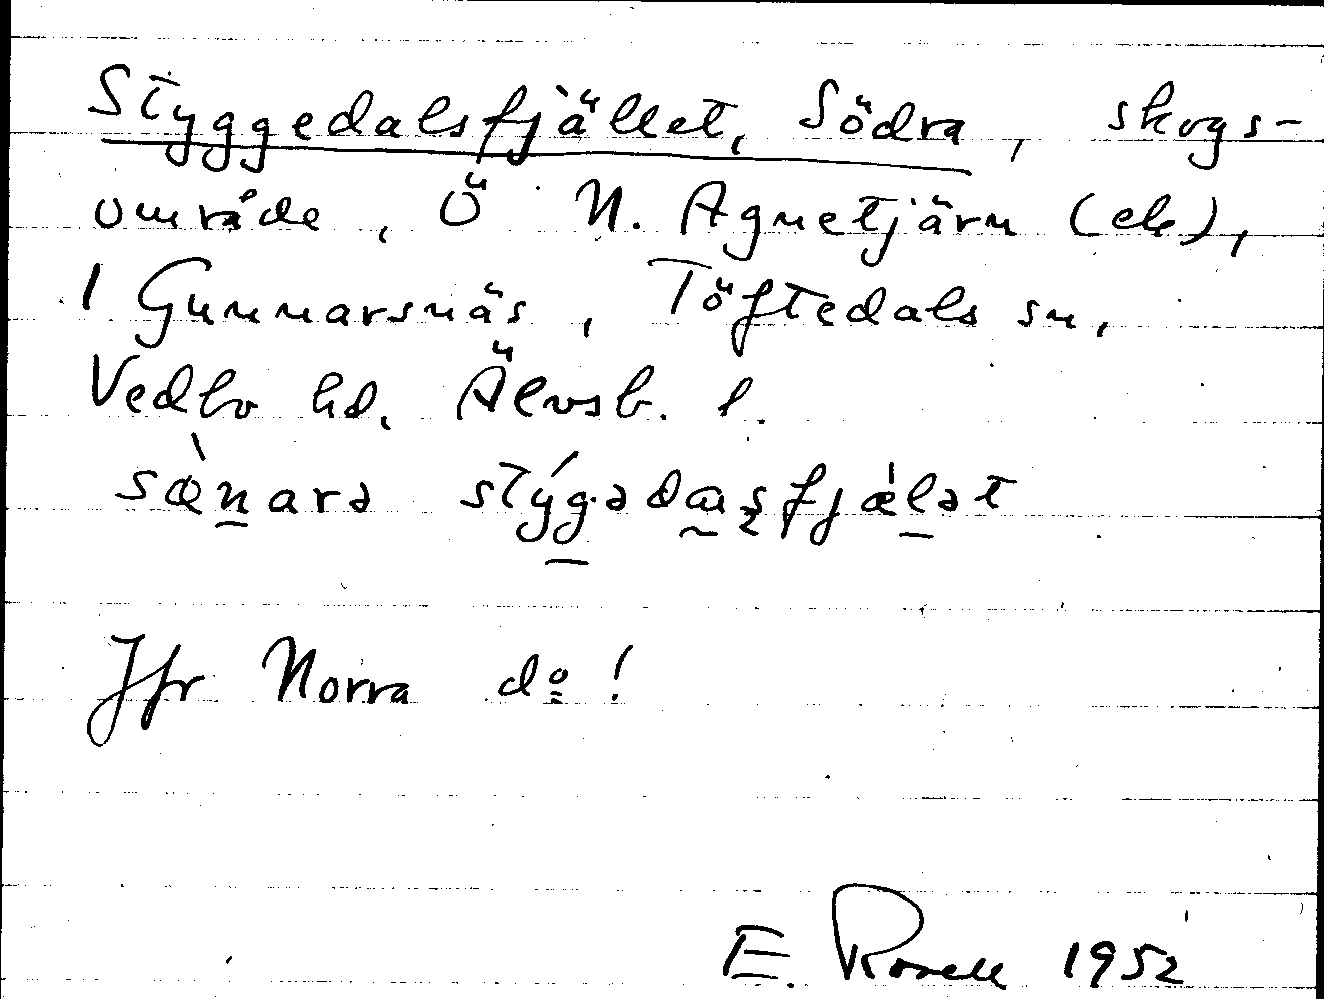 Styggedalsfjället, Södra, skogs-
område, Ö N. Agnetjärn (ek),
1 Gunnarsnäs, Töftedals sn,
Vedbo hd. Älvsb. l.
sæ̀nara stýgadaʂfjælət
Jfr Norra do!
E. Rosell 1952